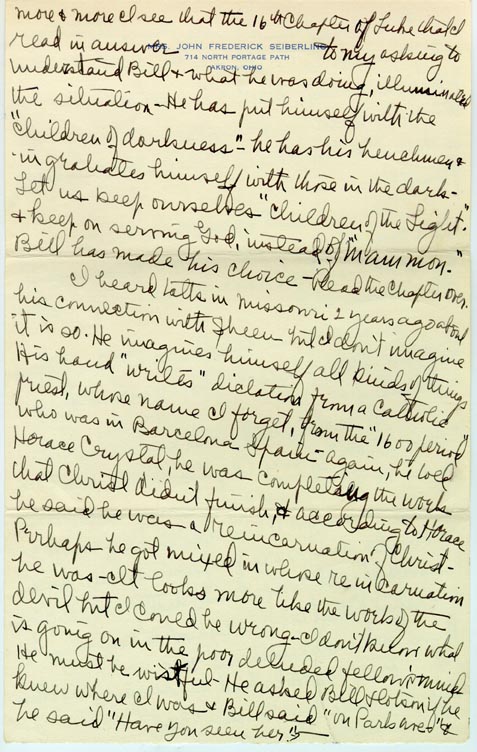 more & more I see that the 16th Chapter of Luke that I
read in answer to my asking to
MRS. JOHN FREDERICK SEIBERLING
714 NORTH PORTAGE PATH
AKRON, OHIO
understand Bill & what he was doing, illuminated
the situation - He has put himself with the
"children of darkness" - he has his henchmen &
ingratiates himself with those in the dark -
Let us keep ourselves "children of the Light".
& keep on serving God, instead of "mammon."
Bill has made his choice - Read the Chapter over.
I heard lots in Missouri 2 years ago about
his connection with Sheen - but I don't imagine
it is so. He imagines himself all kinds of things
His hand "writes" dictation from a Catholic
priest, whose name I forget, from the "1600 period"
who was in Barcelona Spain - again, he told
Horace Crystal, he was completing the work
that Christ didn't finish, & according to Horace
he said he was a reincarnation of Christ -
Perhaps he got mixed in whose reincarnation
he was - It looks more like the works of the
devil but I could be wrong - I don't know what
is going on in the poor deluded fellow's mind
He must be wistful - He asked Bill if he
knew where I was & Bill said "on Park Ave" &
he said "Have you seen her"?